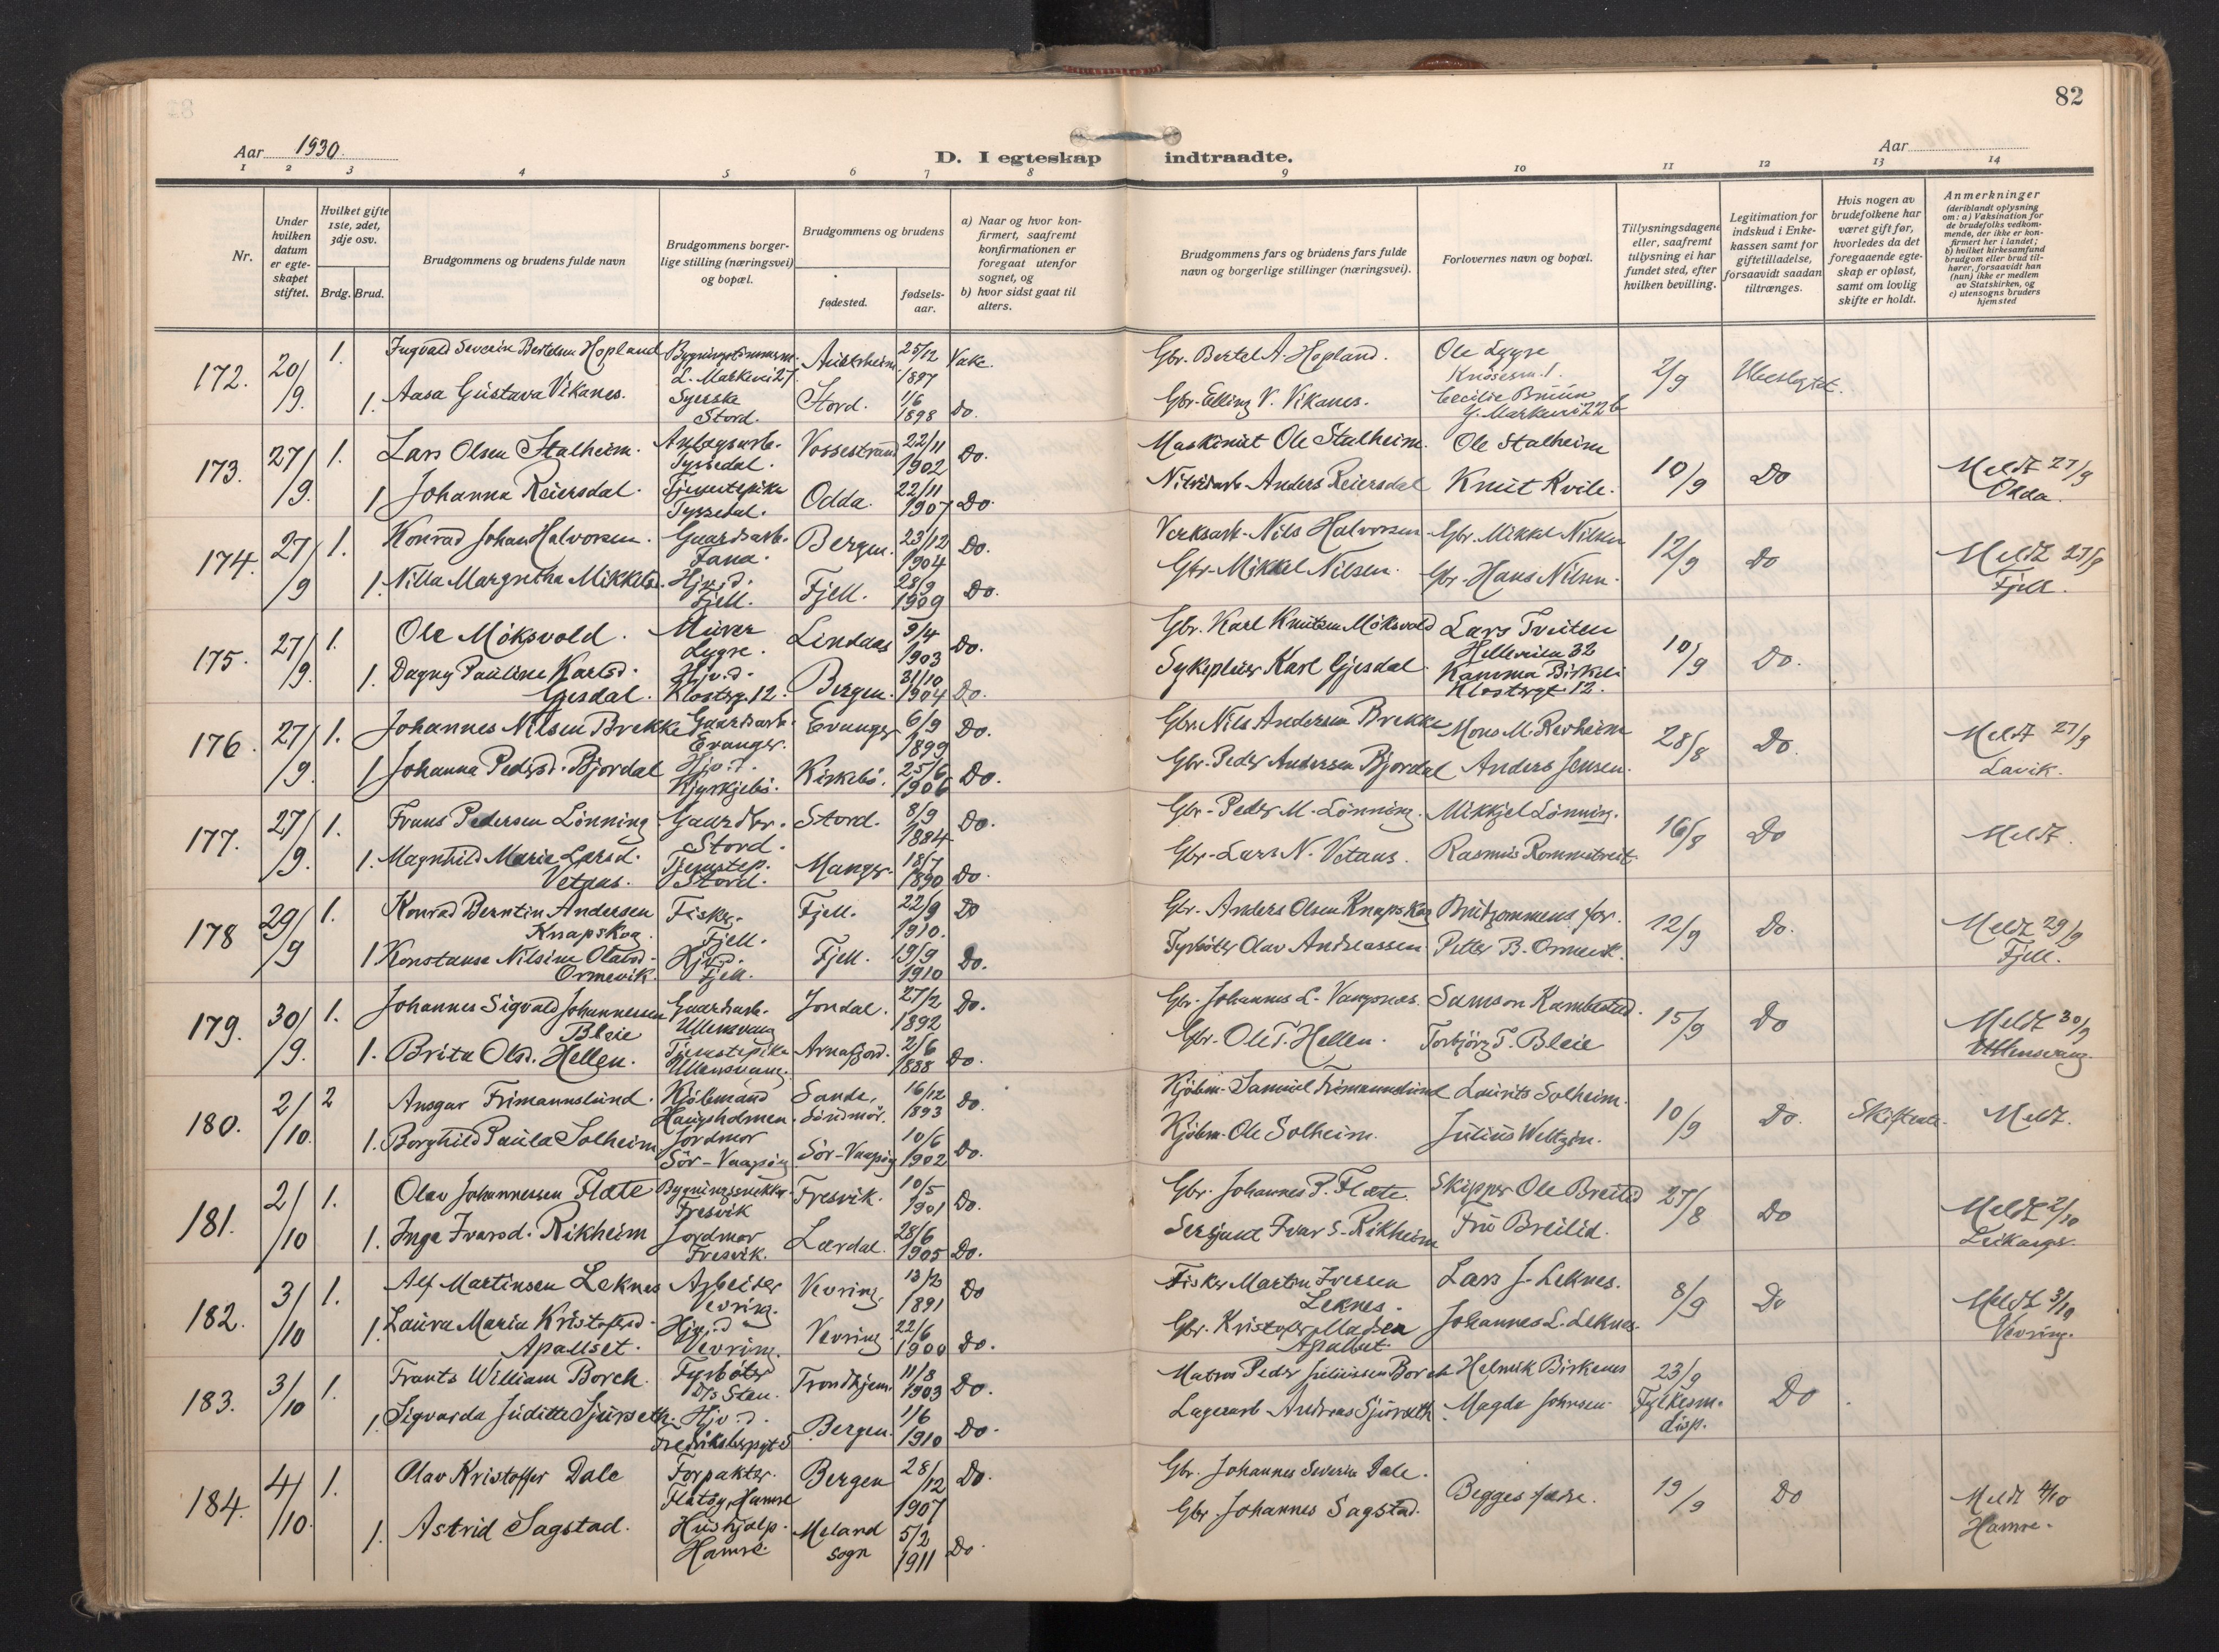 82
Aar 1930.
D. I egteskap indtraadte.
Aar
1 2 3 4 5 6 7 8 9 10 11 12 13 14
Nr.
Under hvilken datum er egteskapet stiftet.
Hvilket gifte 1ste, 2det, 3dje osv.
Brdg. Brud.
Brudgommens og brudens fulde navn
Brudgommens borgerlige stilling (næringsvei) og bopæl.
Brudgommens og brudens
fødested.
fødselsaar.
a) Naar og hvor konfirmert, saafremt konfirmationen er foregaat utenfor sognet, og
b) hvor sidst gaat til alters.
Brudgommens fars og brudens fars fulde navn og borgerlige stillinger (næringsvei).
Forlovernes navn og bopæl.
Tillysningsdagene eller, saafremt tillysning ei har fundet sted, efter hvilken bevilling.
Legitimation for indskud i Enkekassen samt for giftetilladelse, forsaavidt saadan tiltrænges.
Hvis nogen av brudefolkene har været gift før, hvorledes da det foregaaende egteskap er opløst, samt om lovlig skifte er holdt.
Anmerkninger
(deriblandt oplysning om: a) Vaksination for de brudefolks vedkommende, der ikke er konfirmert her i landet; b) hvilket kirkesamfund brudgom eller brud tilhører, forsaavidt han (hun) ikke er medlem av Statskirken, og c) utensogns bruders hjemsted
172. 20/9. 1. Ingvald Severin Bertelsen Hopland L. Markevei 27. 25/12 1897 Gbr. Bertel A. Hopland. Ole Lygre 2/9 Ubeslegtet.
1. Aasa Gustava Vikanes. Syerske Stord. Stord. 1/6 1898 Do. Gbr. Elling V. Vikanes. Cecilie Bruun 22b
173. 27/9. 1. Lars Olsen Stalheim. Anlegsarb. Tyssedal. Vossestrand 22/11 1902 Do. Maskinist Ole Stalheim. Ole Stalheim 10/9 Do Meldt 27/9 Odda.
1 Johanna Reiersdal. Tjenestepike Tyssedal. Odda. 22/11 1907 Do. Anders Reiersdal Knut Kvile.
174. 27/9 1. Konrad Johan Halvorsen. Gaardsarb. Fana. Bergen. 23/12 1904 Do. Verksarb. Nils Halvorsen Gbr. Mikkel Nilsen 12/9 Do Meldt 27/9 Fjell.
1. Nilla Margretha Mikkelsd. Hjv. d. Fjell. Fjell. 28/9 1909 Do. Gbr. Mikkel Nilsen. Gbr. Hans Nilsen.
175. 27/9. 1. Ole Möksvold. Murer Lygre. Lindaas 3/4 1903 Do. Gbr. Karl Knutsen Möksvold Lars Tveiten Helleveien 32 10/9 Do.
1. Dagny Pauline Karlsd. Gjesdal. Hjv. d. Klostergt. 12. Bergen. 31/10 1904 Do. Sykepleier Karl Gjesdal. Klostergt. 12.
176. 27/9. 1. Johannes Nilsen Brekke Gaardsarb. Evanger. Evanger 6/9 1899 Do. Gbr. Nils Andersen Brekke Mons M. Revheim 28/8 Do. Meldt 27/9 Lavik.
1 Johanna Pedersd. Bjordal Hjv. d. Kyrkjebö. Kirkebö. 25/6 1906 Do. Gbr. Peder Andersen Bjordal Anders Jensen.
177. 27/9. 1. Frans Pedersen Lönning Gaardbr. Stord. Stord. 8/9 1884 Do. Gbr. Peder M. Lönning. Mikkjel Lönning. 16/8 Do Meldt.
1. Magnhild Marie Larsd. Vetaas. Tjenestep. Stord. Manger. 18/7 1890 Do. Gbr. Lars N. Vetaas. Rasmus Rommetveit.
178 29/9 1. Konrad Berntin Andersen Knapskog. Fisker. Fjell. Fjell. 22/9 1910. Do Gbr. Anders Olsen Knapskog Brudgommens far. 12/9 Do. Meldt 29/9 Fjell.
1 Konstanse Nilsine Olavsd. Ormevik. Hjv. d. Fjell. Fjell. 19/9 1910 Do. Fyrböter Olav Andreassen. Petter B. Ormevik.
179. 30/9. 1. Johannes Sigvald Johannessen Bleie Gaardsarb. Ullensvang Jondal. 27/2 1892 Do. Gbr. Johannes L. Samson Kambestad. 15/9 Do Meldt 30/9 Ullensvang.
1. Brita Olsd. Hellen. Tjenestepike Ullensvang. Arnafjord. 2/6 1888 Do. Gbr. Ole T. Hellen. Torbjörg T. Bleie
180. 2/10. 2 Ansgar Frimannslund. Kjöbmand Haugsholmen. Sande, Söndmör. 16/12 1893 Do. Kjöbm. Samuel Frimannslund Laurits Solheim. 10/9 Do. Skifteatt. Meldt.
1. Borghild Paula Solheim Jordmor Sör-Vaagsöy Sör-Vaagsöy 10/6 1902 Do. Kjöbm. Ole Solheim. Julius Weltzin.
181. 2/10 1. Olav Johannessen Flæte Bygningssnekker. Fresvik Fresvik. 10/5 1901 Do. Gbr. Johannes P. Flæte. Skipper Ole Breilid 27/8 Do Meldt 2/10 Leikanger.
1. Inga Ivarsd. Rikheim Jordmor Fresvik. Lærdal. 28/6 1905 Do. Sersjant Ivar S. Rikheim Fru Breilid.
182. 3/10 1. Alf Martinsen Leknes Arbeider Vevring. Vevring. 13/2 1891 Do Fisker Martin Iversen Leknes. Lars J. Leknes. 8/9 Do Meldt 3/10 Vevring.
1. Laura Maria Kristofersd. Apallset. Hjv. d Vevring. Vevring 22/6 1900 Do. Gbr. Kristofer Madsen Apalset. Johannes L. Leknes.
183. 3/10 1. Frants William Borch. Fyrböter D/S Sten. Trondhjem. 11/8 1903 Do. Matros Peder Juliussen Borch Helmik Birkenes 23/9 Fylkesm. disp. Do
1. Sigvarda Juditte Sjursseth. Hjv. d. Bergen. 1/6 1910 Do. Lagerarb. Andreas Sjurseth Magda Johnsen.
184. 4/10. 1. Olav Kristoffer Dale Forpakter. Flatöy, Hamre Bergen 28/12 1907 Do. Gbr. Johannes Severin Dale. Begges fædre. 19/9 Do Meldt 4/10 Hamre.
1. Astrid Sagstad. Hushjælp. Hamre. Meland sogn 5/2 1911 Do. Gbr. Johannes Sagstad.